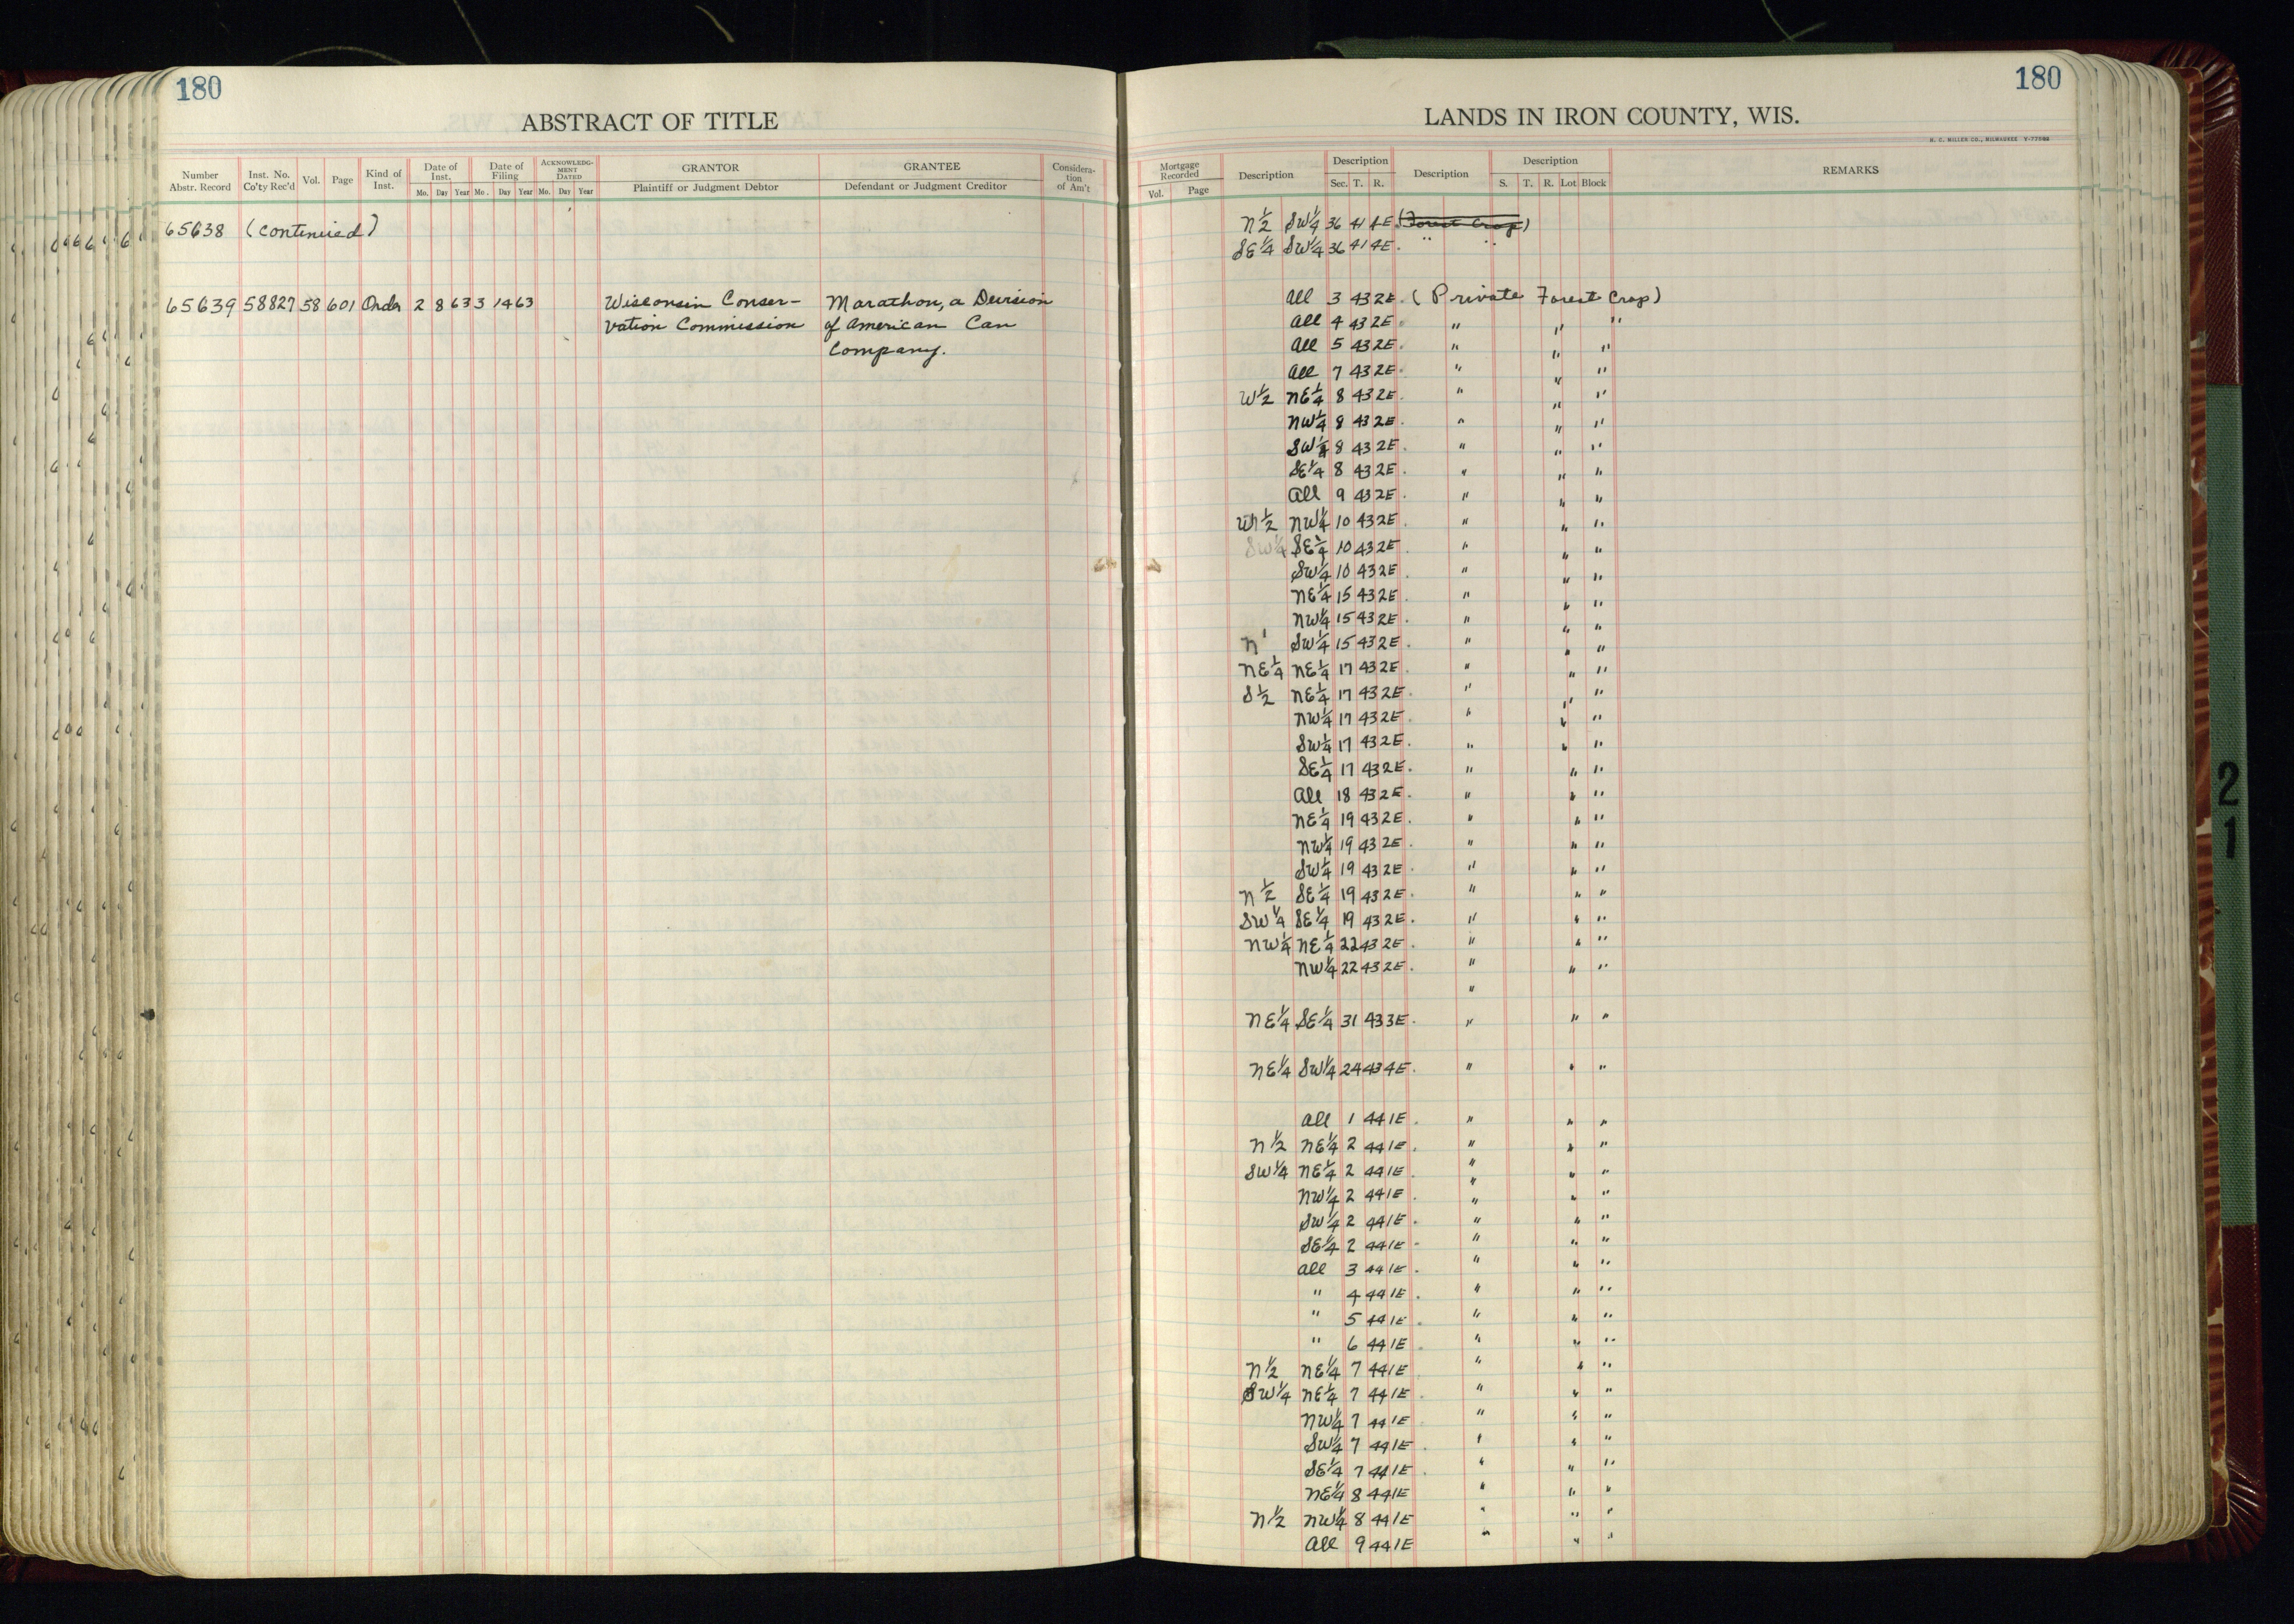 180
ABSTRACT OF TITLE
Number Abstr. Record Inst. No. Co'ty Rec'd Vol. Page Kind of Inst. Date of Inst. Mo. Day Year Date of Filing Mo. Day Year ACKNOWLEDGMENT DATED Mo. Day Year GRANTOR Plaintiff or Judgment Debtor GRANTEE Defendant or Judgment Creditor Consideration of Am't
65638 (continued)
65639 58827 58 601 Order 2 8 63 3 14 63 Wisconsin Conser- Marathon, a Division
vation Commission of American Can
Company.
180
LANDS IN IRON COUNTY, WIS.
H. C. MILLER CO., MILWAUKEE
Mortgage Recorded Vol. Page Description Description Sec. T. R. Description Description S. T. R. Lot Block REMARKS
N½ SW¼ 36 41 4E (Forest Crop)
SE¼ SW¼ 36 41 4E. " "
All 3 43 2E. (Private Forest Crop)
All 4 43 2E. " " "
All 5 43 2E. " " "
All 7 43 2E. " " "
W½ NE¼ 8 43 2E. " " "
NW¼ 8 43 2E. " " "
SW¼ 8 43 2E. " " "
SE¼ 8 43 2E. " " "
All 9 43 2E. " " "
W½ NW¼ 10 43 2E. " " "
SW¼ SE¼ 10 43 2E. " " "
SW¼ 10 43 2E. " " "
NE¼ 15 43 2E. " " "
NW¼ 15 43 2E. " " "
N SW¼ 15 43 2E. " " "
NE¼ NE¼ 17 43 2E. " " "
S½ NE¼ 17 43 2E. " " "
NW¼ 17 43 2E. " " "
SW¼ 17 43 2E. " " "
SE¼ 17 43 2E. " " "
All 18 43 2E. " " "
NE¼ 19 43 2E. " " "
NW¼ 19 43 2E. " " "
SW¼ 19 43 2E. " " "
N½ SE¼ 19 43 2E. " " "
SW¼ SE¼ 19 43 2E. " " "
NW¼ NE¼ 22 43 2E. " " "
NW¼ 22 43 2E. " " "
"
NE¼ SE¼ 31 43 3E. " " "
NE¼ SW¼ 24 43 4E. " " "
All 1 44 1E. " " "
N½ NE¼ 2 44 1E. " " "
SW¼ NE¼ 2 44 1E. " " "
NW¼ 2 44 1E. " " "
SW¼ 2 44 1E. " " "
SE¼ 2 44 1E. " " "
All 3 44 1E. " " "
" 4 44 1E. " " "
" 5 44 1E. " " "
" 6 44 1E " " "
N½ NE¼ 7 44 1E " " "
SW¼ NE¼ 7 44 1E. " " "
NW¼ 7 44 1E " " "
SW¼ 7 44 1E. " " "
SE¼ 7 44 1E. " " "
NE¼ 8 44 1E " " "
N½ NW¼ 8 44 1E " " "
All 9 44 1E " " "
21